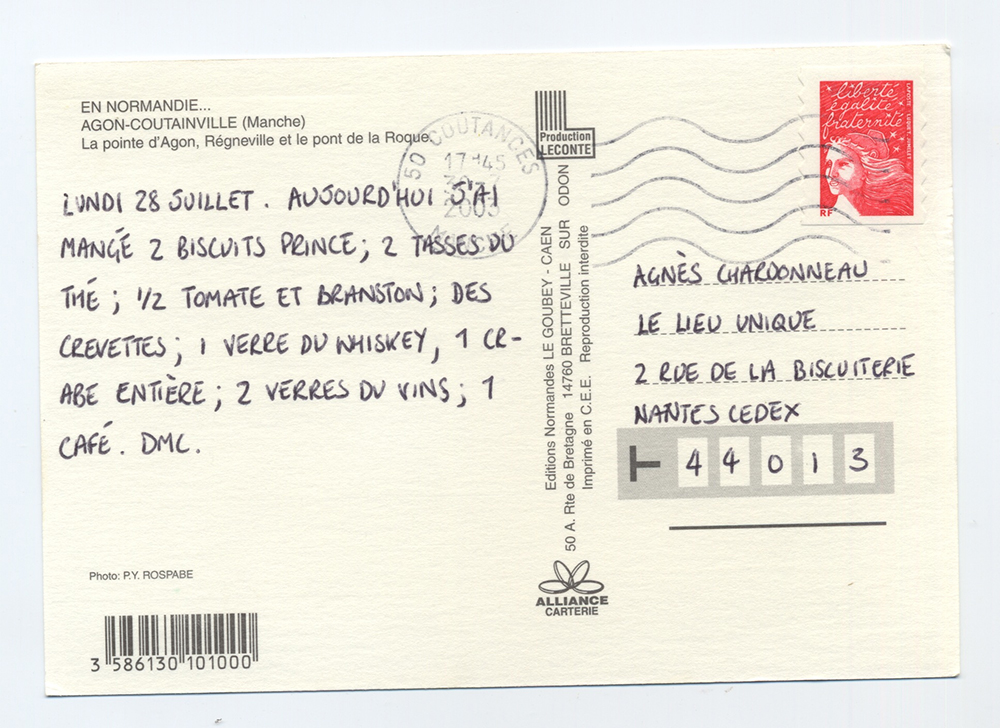 EN NORMANDIE...
AGON-COUTAINVILLE (Manche)
La pointe d'Agon, Régneville et le pont de la Roque.
LUNDI 28 JUILLET. AUJOURD'HUI J'AI
MANGÉ 2 BISCUITS PRINCE; 2 TASSES DU
THÉ; 1/2 TOMATE ET BRANSTON; DES
CREVETTES; 1 VERRE DU WHISKEY, 1 CR-
ABE ENTIÈRE; 2 VERRES DU VINS; 1
CAFÉ. DMC.
Photo: P.Y. ROSPABE
3 586130 101000
50 COUTANCES
17H45
2003
MANCHE
Production
LECONTE
Editions Normandes LE GOUBEY - CAEN
50 A. Rte de Bretagne 14760 BRETTEVILLE SUR ODON
Imprimé en C.E.E. Reproduction interdite
ALLIANCE
CARTERIE
liberté
égalité
fraternité
RF
AGNÈS CHARDONNEAU
LE LIEU UNIQUE
2 RUE DE LA BISCUITERIE
NANTES CEDEX
T 44013